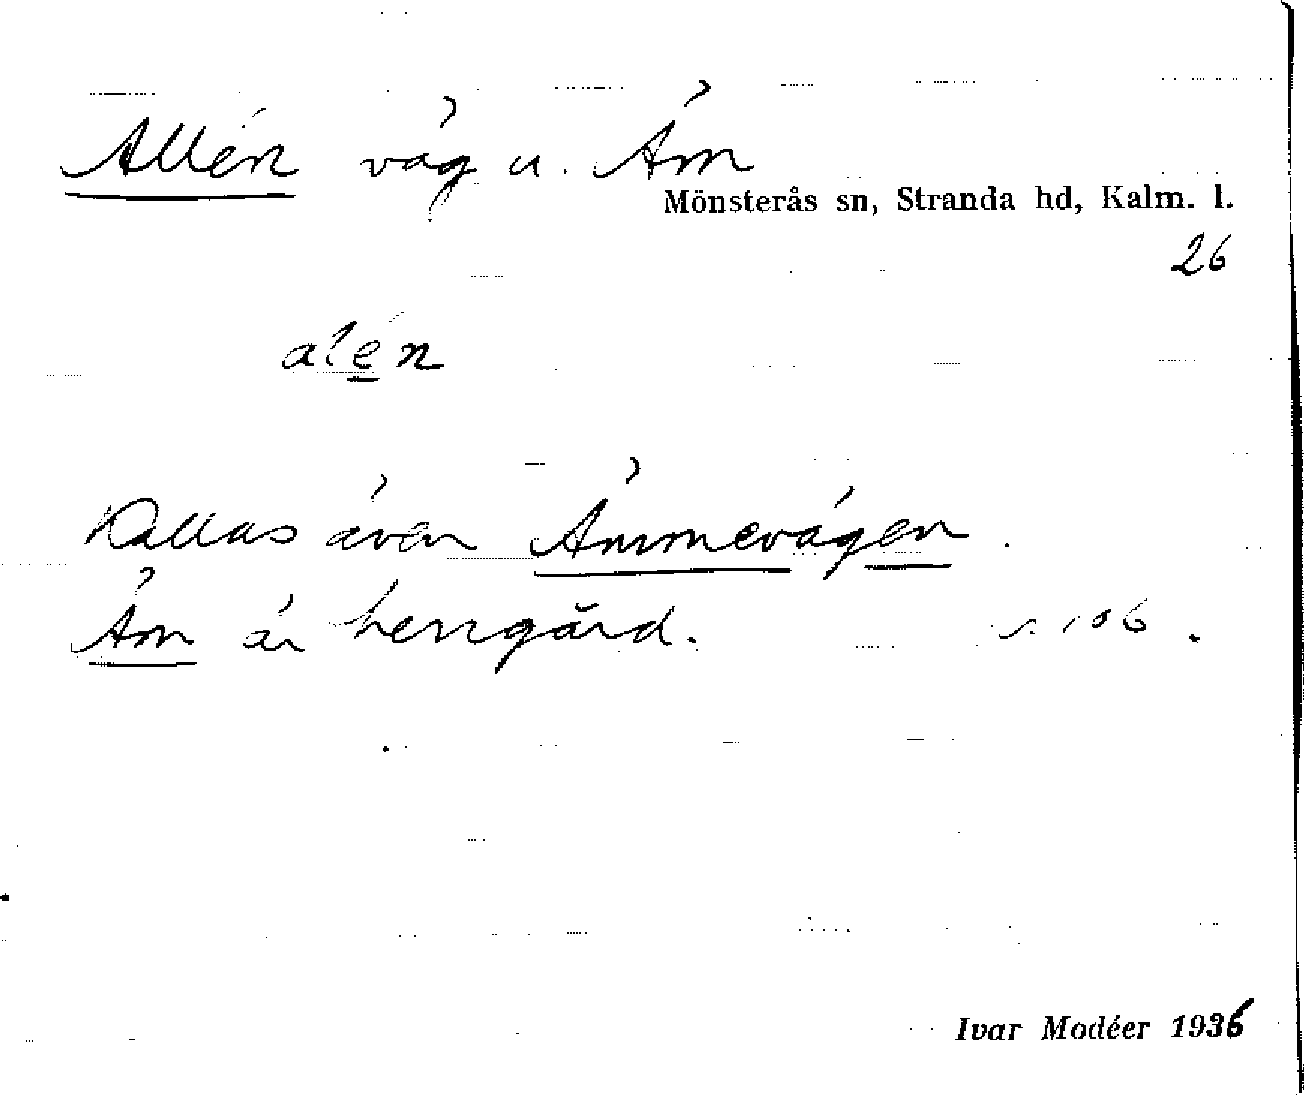 Allén väg u. Äm
Mönsterås sn, Stranda hd, Kalm. l.
26
alén
Kallas även Ämmevägen.
Äm är herrgård. s. 106.
Ivar Modéer 1936